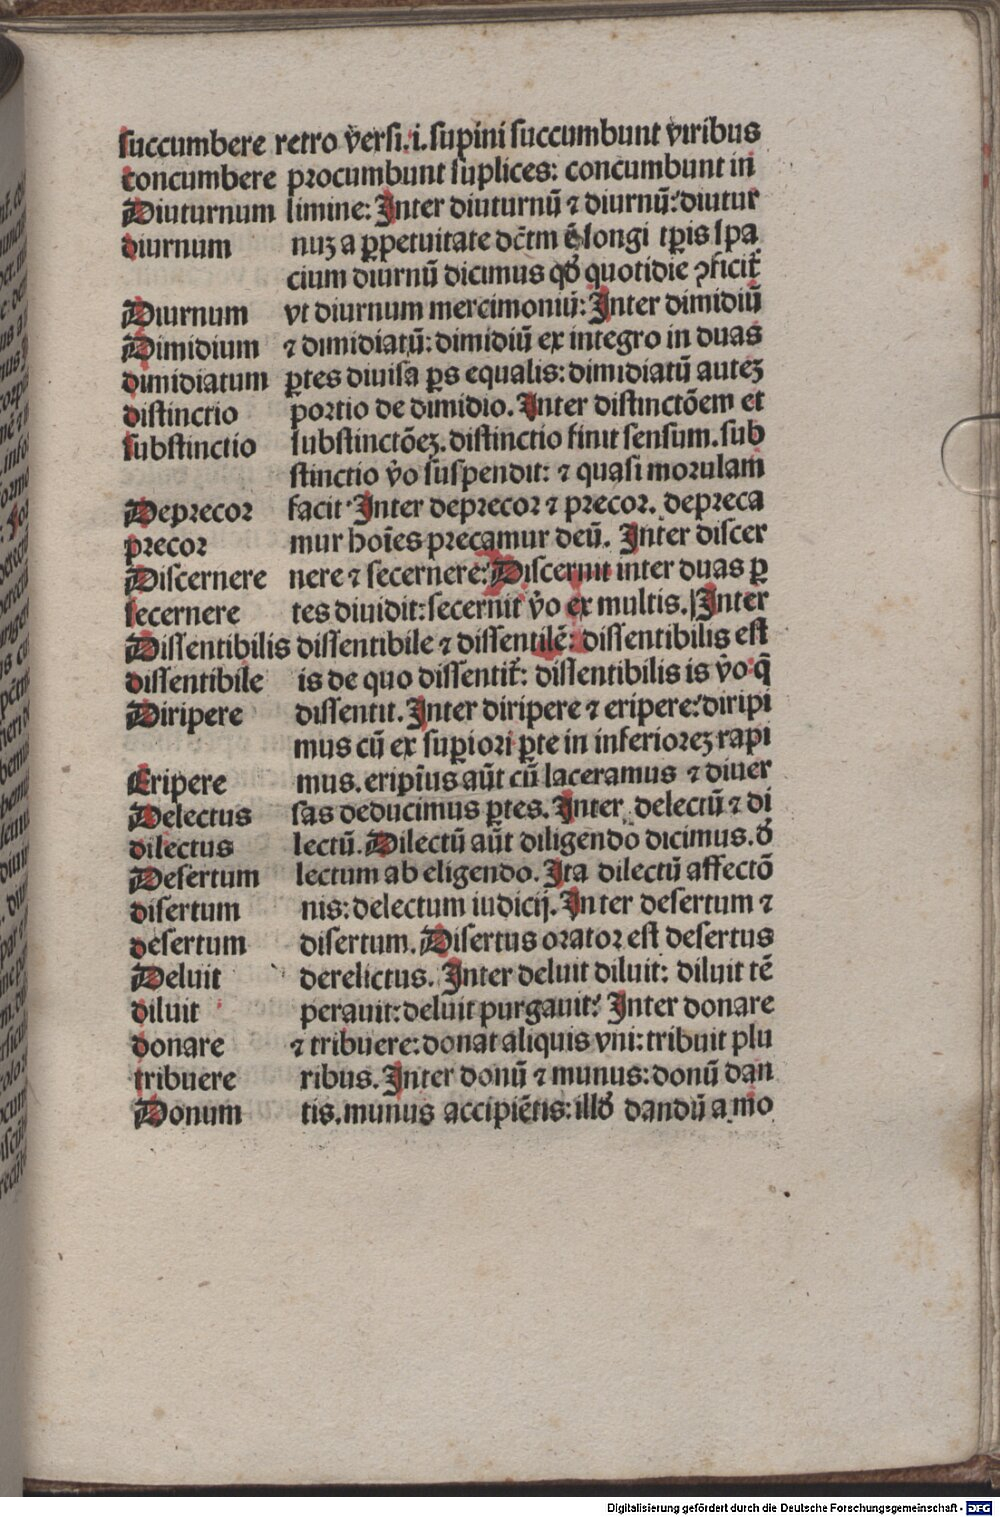 succumbere retro v̄ersi.i.supini succumbunt viribus
concumbere procumbunt suplices: concumbunt in
Diuturnum limine: Inter diuturnū ⁊ diurnū: diutur
diurnum nuꝫ a ꝑpetuitate dc̄tm ē longi tꝑis spa
cium diurnū dicimus qd̓ quotidie ꝯficit᷑
Diurnum vt diurnum mercimoniū: Inter dimidiū
Dimidium ⁊ dimidiatū: dimidiū ex integro in duas
dimidiatum ꝑtes diuisa ꝑs equalis: dimidiatū auteꝫ
distinctio portio de dimidio. Inter distinctōem et
substinctio substinctōeꝫ. distinctio finit sensum. sub
stinctio v̄o suspendit: ⁊ quasi morulam
Deprecor facit. Inter deprecor ⁊ precor. depreca
precor mur hoīes precamur deū. Inter discer
Discernere nere ⁊ secernere: Discernit inter duas ꝑ
secernere tes diuidit: secernit v̄o ex multis. Inter
Dissentibilis dissentibile ⁊ dissentilē: dissentibilis est
dissentibile is de quo dissentit᷑: dissentibilis is v̄o q̄
Diripere dissentit. Inter diripere ⁊ eripere: diripi
mus cū ex suꝑiori ꝑte in inferioreꝫ rapi
Eripere mus. eripīus aūt cū laceramus ⁊ diuer
Delectus sas deducimus ꝑtes. Inter delectū ⁊ di
dilectus lectū. Dilectū aūt diligendo dicimus. d̓
Desertum lectum ab eligendo. Ita dilectū affectō
disertum nis: delectum iudicij. Inter desertum ⁊
desertum disertum. Disertus orator est desertus
Deluit derelictus. Inter deluit diluit: diluit tē
diluit perauit: deluit purgauit: Inter donare
donare ⁊ tribuere: donat aliquis vni: tribuit plu
tribuere ribus. Inter donū ⁊ munus: donū dan
Donum tis. munus accipiētis: illd̓ dandū a mo
Digitalisierung gefördert durch die Deutsche Forschungsgemeinschaft - DFG